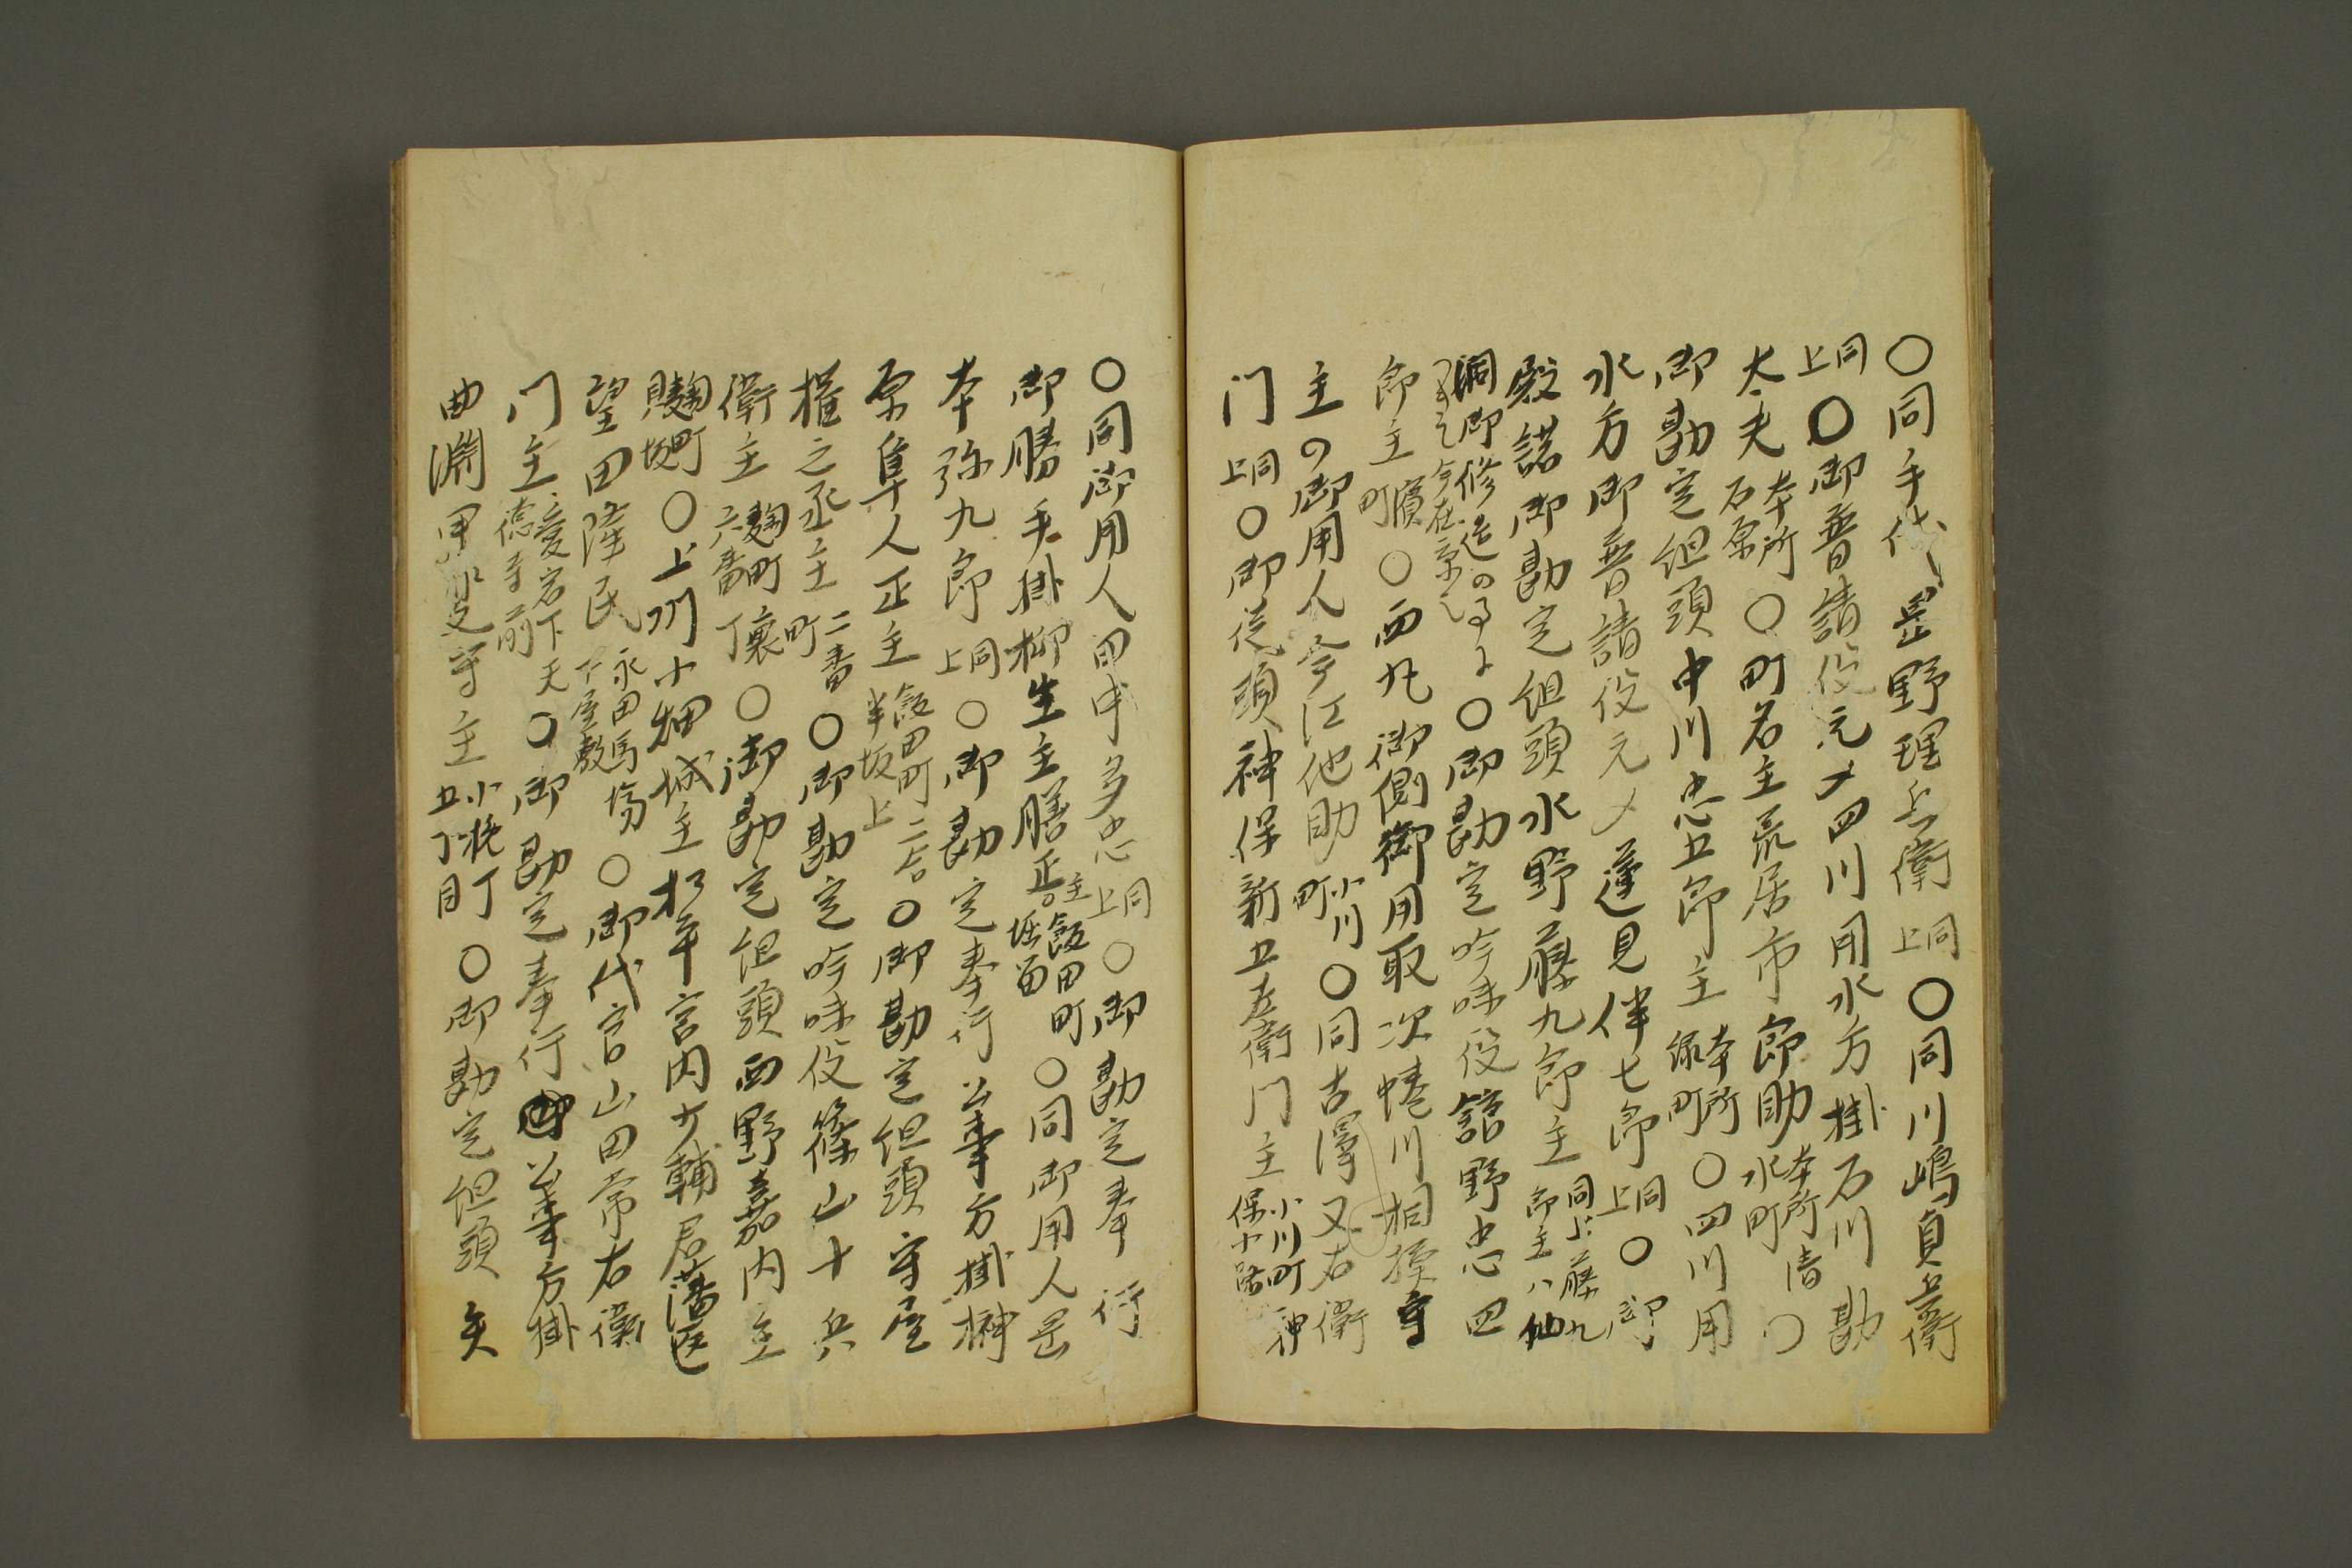 〇同手代星野理兵衛同上〇同川嶋貞兵衛
同上〇御普請役元〆四川用水方掛石川勘
太夫本所石原〇町名主荒居市郎助本所清水町〇
御勘定組頭中川忠五郎主本所緑町〇四川用
水方御普請役元〆蓮見伴七郎同上〇御
殿詰御勘定組頭水野藤九郎主同上藤九郎主八仙
洞御修造の 今在京〇御勘定吟味役舘野忠四
郎主濱町〇西丸御側御用取次蜷川相模守
主の御用人今江他助小川町〇同吉澤又右衛
门同上〇御徒頭神保新五左衛门主小川町神保小路
〇同御用人田中多忠同上〇御勘定奉行
御勝手掛柳生主膳正主飯田町堀留〇同御用人岳
本弥九郎同上〇御勘定奉行公事方掛榊
原隼人正主飯田町二合半坂上〇御勘定組頭守屋
権之丞主二番町〇御勘定吟味役篠山十兵
衛主麹町六番丁裏〇御勘定組頭西野嘉内主
麹町貝坂〇上州小畑城主松平宮内少輔君藩医
望田隆民永田馬場下屋敷〇御代官山田常右衛
门主愛宕下天徳寺前〇御勘定奉行公事方掛
曲淵甲斐守主小挽丁五丁目〇御勘定組頭矢